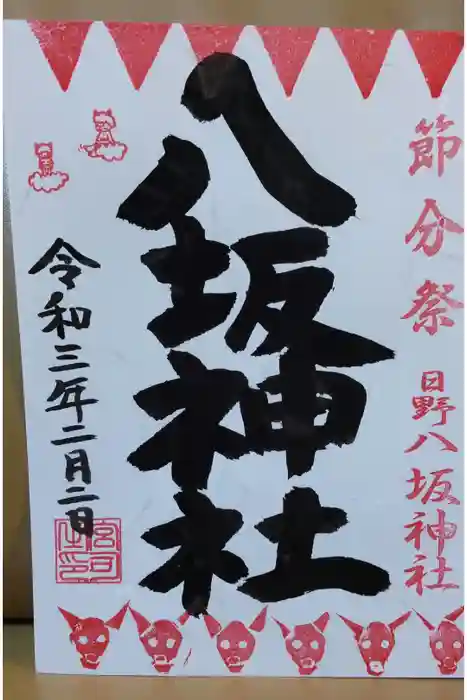 節分祭 日野八坂神社
八坂神社
令和三年二月二日
宮司之印